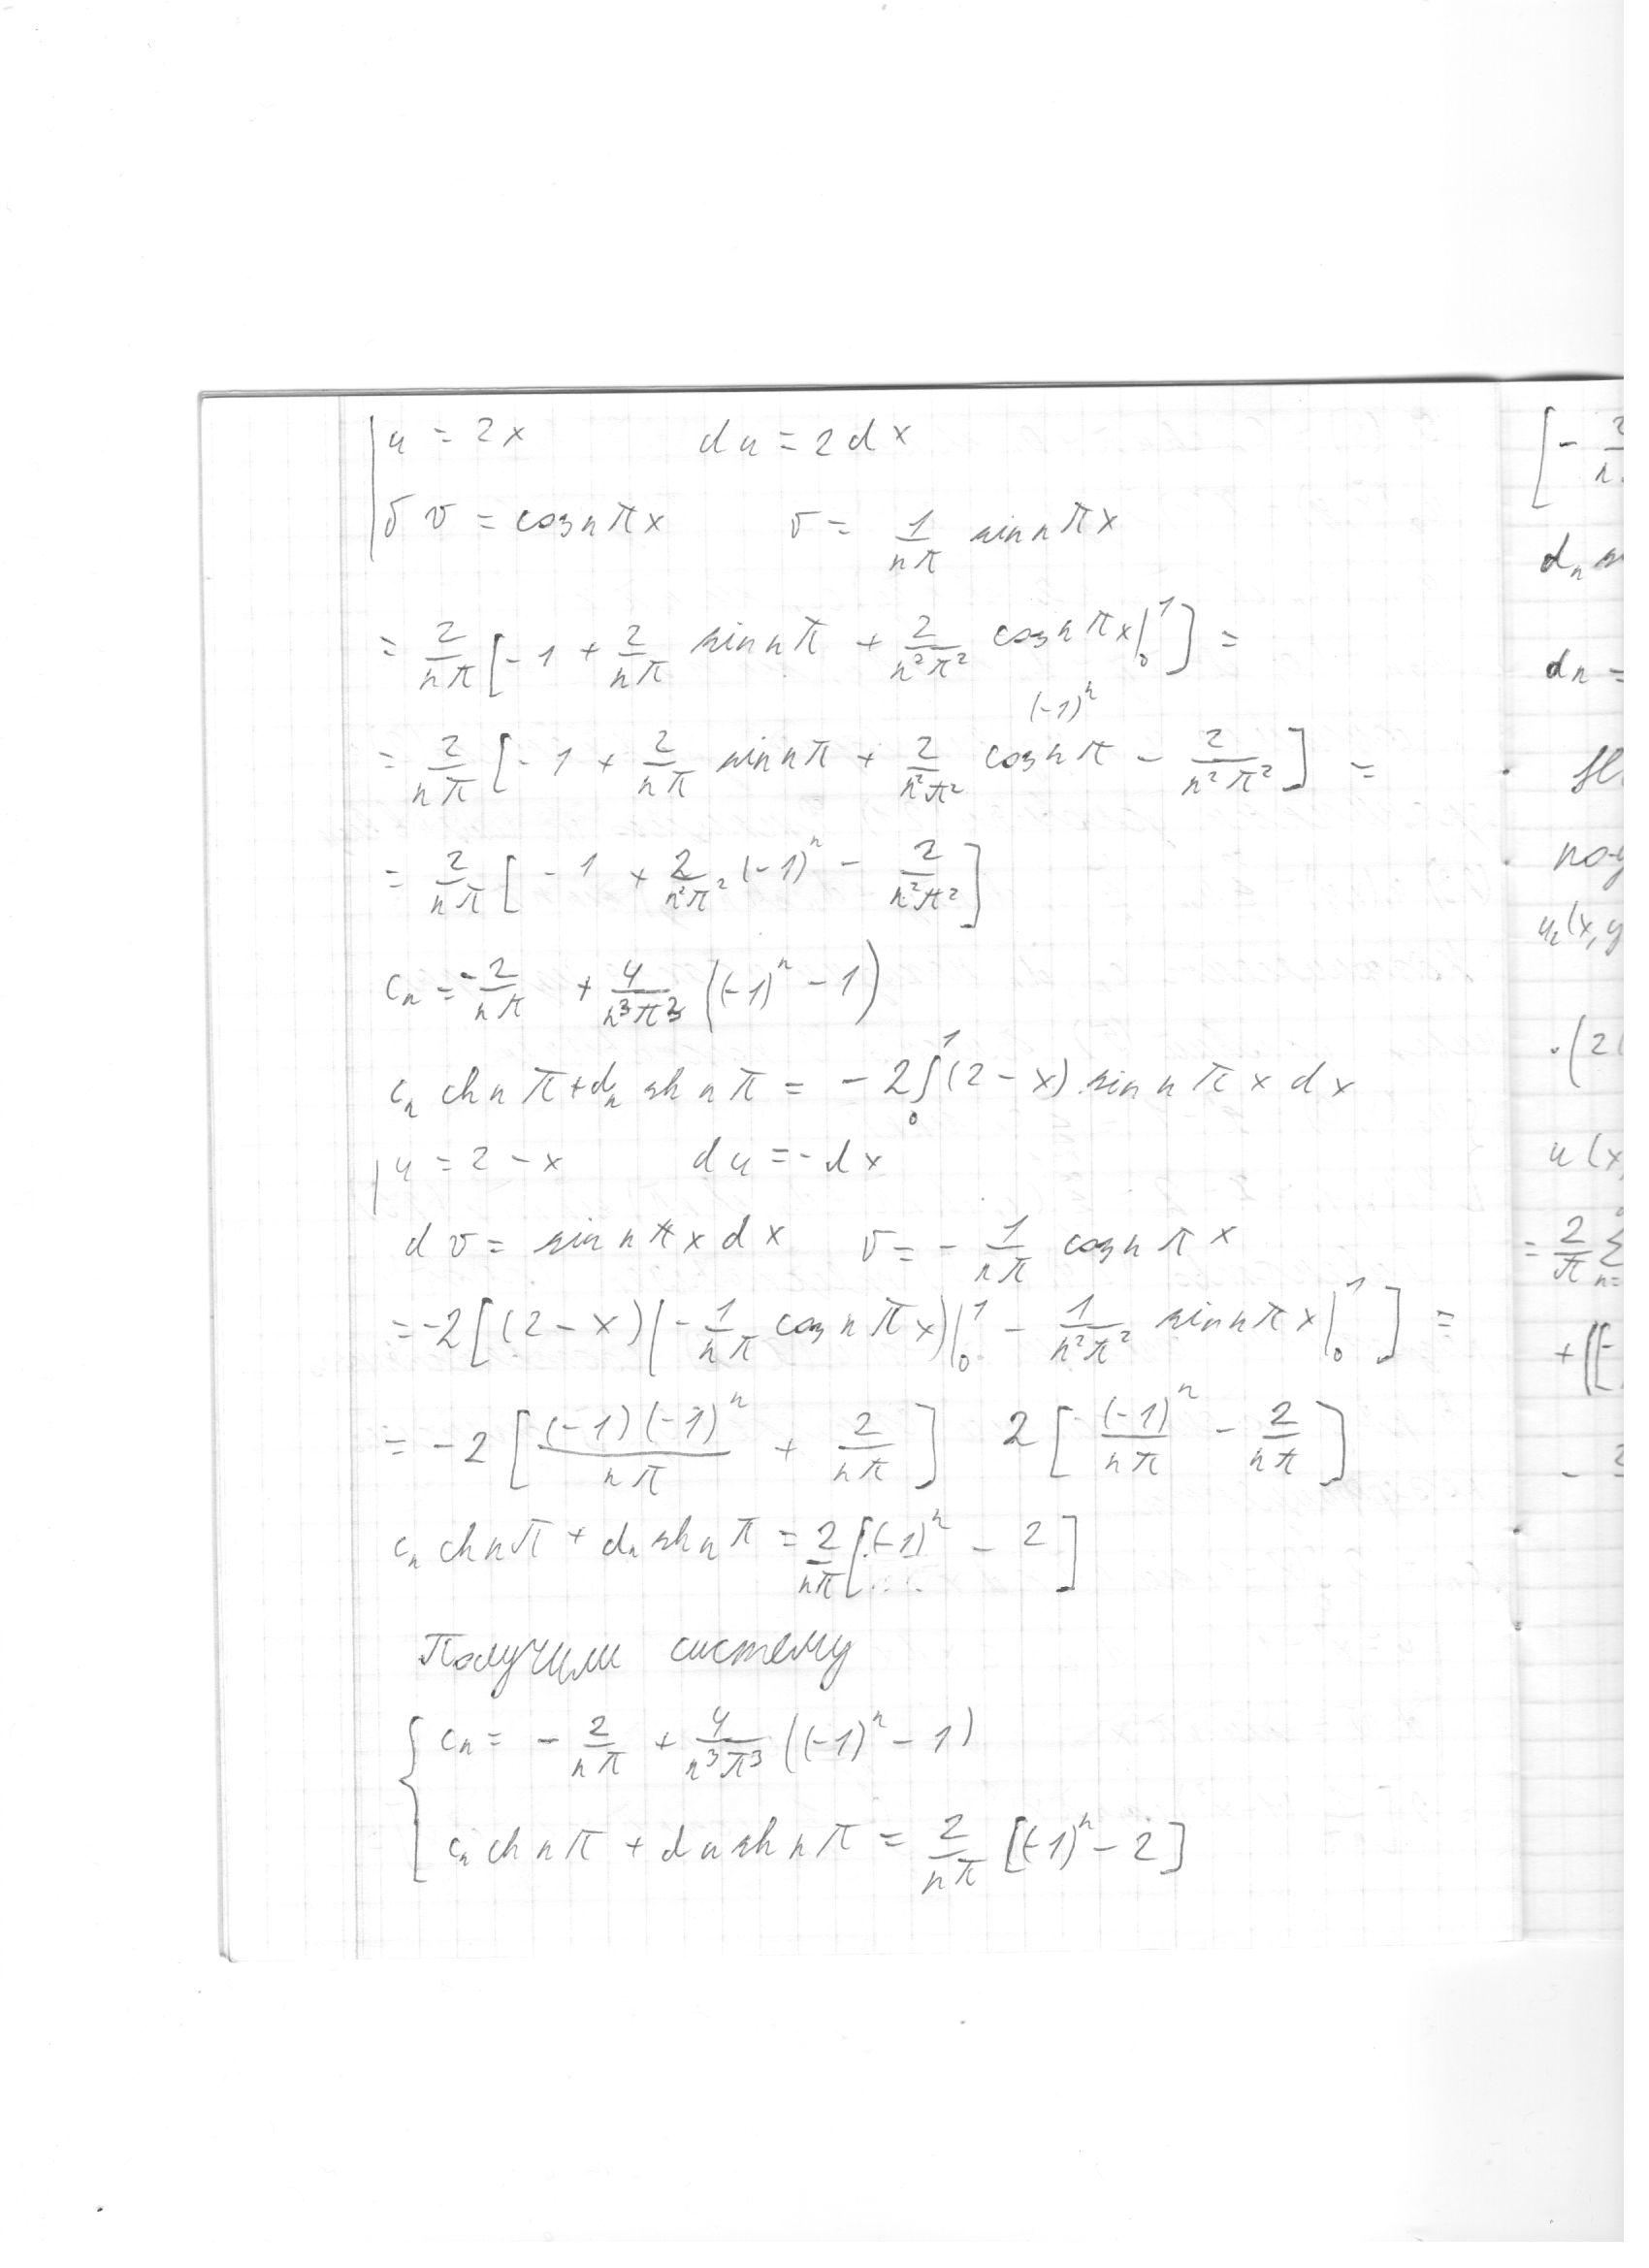 u = 2x du = 2dx
δv = cos nπx v = 1/(nπ) sin nπx
= 2/(nπ) [-1 + 2/(nπ) sin nπ + 2/(n²π²) cos nπx |₀¹] =
(-1)ⁿ
= 2/(nπ) [-1 + 2/(nπ) sin nπ + 2/(n²π²) cos nπ - 2/(n²π²)] =
= 2/(nπ) [-1 + 2/(n²π²) (-1)ⁿ - 2/(n²π²)]
cₙ = -2/(nπ) + 4/(n³π³) ((-1)ⁿ - 1)
cₙ ch nπ + dₙ sh nπ = -2 ∫₀¹ (2 - x) sin nπx dx
u = 2 - x du = -dx
dv = sin nπx dx v = - 1/(nπ) cos nπx
= -2 [(2 - x)(- 1/(nπ) cos nπx) |₀¹ - 1/(n²π²) sin nπx |₀¹] =
= -2 [(-1)(-1)ⁿ/(nπ) + 2/(nπ)] 2 [(-1)ⁿ/(nπ) - 2/(nπ)]
cₙ ch nπ + dₙ sh nπ = 2/(nπ) [(-1)ⁿ - 2]
Получили систему
{ cₙ = - 2/(nπ) + 4/(n³π³) ((-1)ⁿ - 1)
cₙ ch nπ + dₙ sh nπ = 2/(nπ) [(-1)ⁿ - 2]
[- 2
dₙ
dₙ =
u₂(x, y
.(2
u(x,
= 2/π Σ n=
+ ([